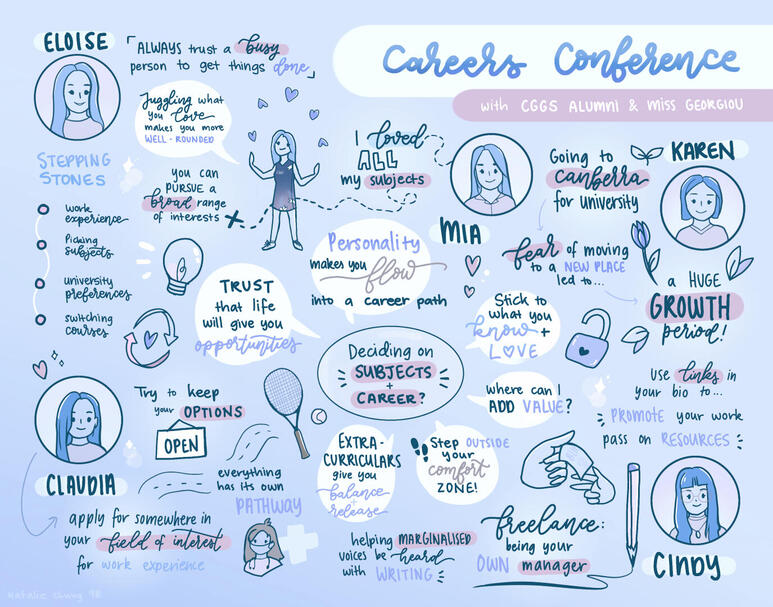 Careers Conference
with CGGS ALUMNI & MISS GEORGIOU
ELOISE
ALWAYS trust a busy
person to get things done
Juggling what
you love
makes you more
WELL-ROUNDED
STEPPING
STONES
work
experience
Picking
subjects
university
preferences
switching
courses
you can
PURSUE a
broad range
of interests
I loved
ALL
my subjects
MIA
Going to
canberra
for university
KAREN
fear of moving
to a NEW PLACE
led to...
a HUGE
GROWTH
period!
Personality
makes you flow
into a career path
TRUST
that life
will give you
opportunities
Stick to
what you
know +
LOVE
Deciding on
SUBJECTS
+
CAREER?
where can I
ADD VALUE?
use links in
your bio to...
PROMOTE your work
pass on RESOURCES
CLAUDIA
Try to keep
your OPTIONS
OPEN
everything
has its own
PATHWAY
EXTRA-
CURRICULARS
give you
balance +
release
Step OUTSIDE
your
comfort
ZONE!
apply for somewhere in
your field of interest
for work experience
helping MARGINALISED
voices be heard
with WRITING
freelance:
being your
OWN manager
CINDY
Natalie Chung 9B